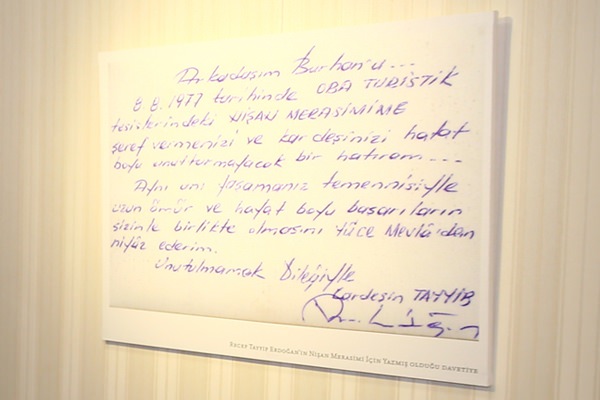 Arkadaşım Burhan'a ---
8.8.1977 tarihinde OBA TURİSTİK
tesislerindeki NİŞAN MERASİMİME
şeref vermenizi ve kardeşinizi hayat
boyu unutturmayacak bir hatıram ---
Aynı anı yaşamanız temennisiyle
uzun ömür ve hayat boyu başarıların
sizinle birlikte olmasını YÜCE Mevlâ'dan
niyâz ederim.
Unutulmamak Dileğiyle
Kardeşin TAYYİB
RECEP TAYYİP ERDOĞAN'IN NİŞAN MERASİMİ İÇİN YAZMIŞ OLDUĞU DAVETİYE